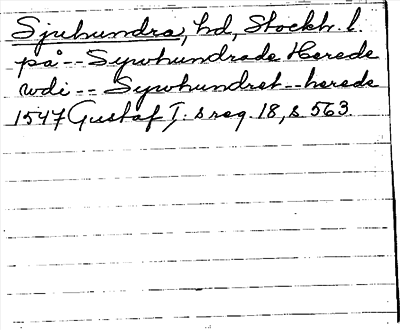 Sjuhundra, hd, Stockh. l.
på -- Sywhundrade Herede
wdi -- Sywhundret -- herede
1547 Gustaf I:s reg. 18, s. 563.